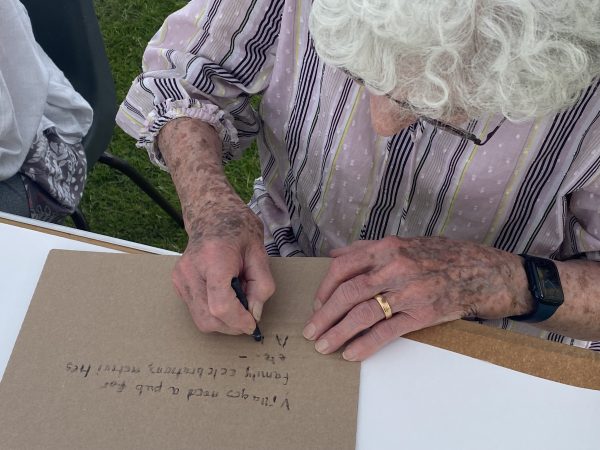 Villages need a pub for
Family celebrations, activities
etc. -
A